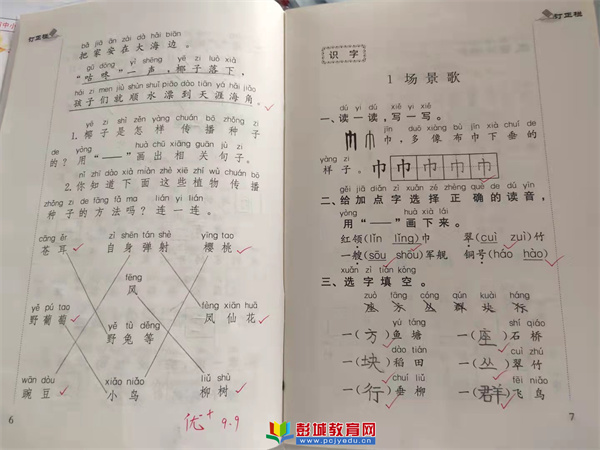 订正栏
bǎ jiā ān zài dà hǎi biān
把家安在大海边。
gū dōng yì shēng yē zi luò xià
“咕咚”一声,椰子落下,
hái zi men jiù shùn shuǐ piāo dào tiān yá hǎi jiǎo
孩子们就顺水漂到天涯海角。
yē zi shì zěn yàng chuán bō zhǒng zi
1.椰子是怎样传播种子
de yòng huà chū xiāng guān jù zi
的?用“——”画出相关句子。
nǐ zhī dào xià miàn zhè xiē zhí wù chuán bō
2.你知道下面这些植物传播
zhǒng zi de fāng fǎ ma lián yi lián
种子的方法吗?连一连。
cāng ěr zì shēn tán shè yīng tao
苍耳 自身弹射 樱桃
fēng
风
yě pú tao fèng xiān huā
野葡萄 凤仙花
yě tù děng
野兔等
wān dòu xiǎo niǎo liǔ shù
豌豆 小鸟 柳树
优+ 9.9
6
订正栏
识字
1 场景歌
dú yi dú xiě yi xiě
一、读一读,写一写。
jīn duō xiàng bù jīn xià chuí de
巾,多像布巾下垂的
yàng zi
样子。巾巾巾巾巾
gěi jiā diǎn zì xuǎn zé zhèng què de dú yīn
二、给加点字选择正确的读音,
yòng huà xià lái
用“——”画下来。
红领(lǐn lǐng)巾 翠(cuì zuì)竹
一艘(sāo shōu)军舰 铜号(háo hào)
xuǎn zì tián kòng
三、选字填空。
zuò fāng cóng qún kuài háng
座 方 丛 群 块 行
yú táng shí qiáo
一(方)鱼塘 一(座)石桥
dào tián cuì zhú
一(块)稻田 一(丛)翠竹
chuí liǔ fēi niǎo
一(行)垂柳 一(群)飞鸟
7
彭城教育网
www.pcjyedu.cn